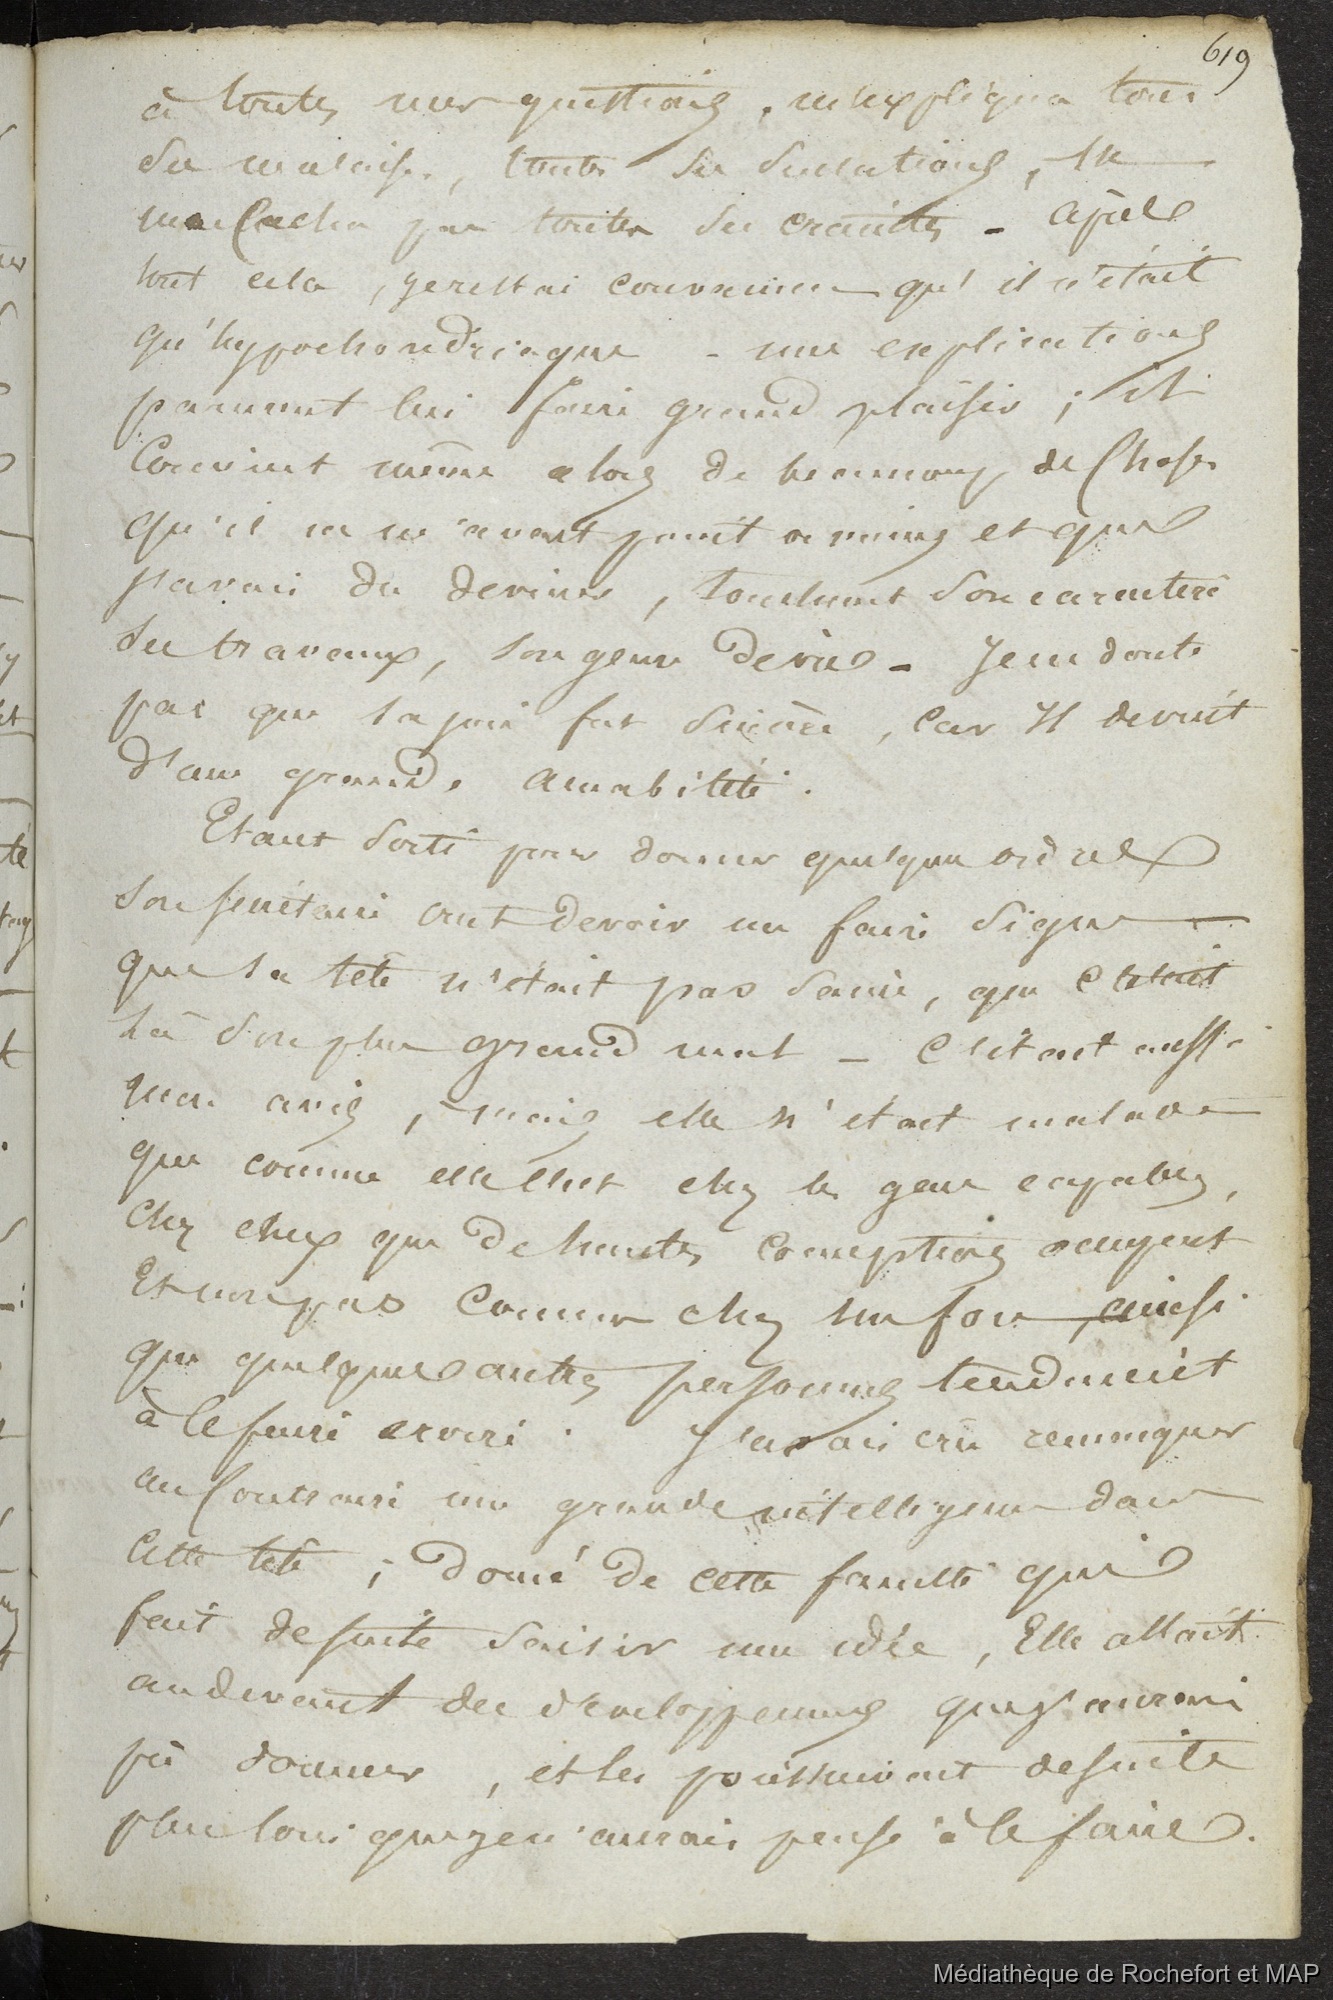 619
à toutes mes questions, m'expliqua tous
ses malaises, toutes ses sensations, ne
me cacha pas toutes ses craintes - après
tout cela, je restai convaincu qu'il n'était
qu'hypochondriaque - mes explications
parurent lui faire grand plaisir ; il
convint même alors de beaucoup de choses
qu'il ne m'avait point avoués et que
j'avais du deviner, touchant son caractère
ses travaux, son genre de vie - Je ne doute
pas que sa joie fut sincère, car Il devint
d'une grande amabilité.
Etant sorti pour donner quelques ordres
son secrétaire crut devoir me faire signe
que sa tête n'était pas saine, que c'était
là son plus grand mal - C'était aussi
mon avis, mais elle n'était malade
que comme elle l'est chez les gens capables,
chez ceux que de hautes conceptions occupent
Et non pas comme chez un fou, ainsi
que quelques autres personnes tendraient
à le faire croire. J'avais cru remarquer
au Contraire une grande intelligence dans
cette tête ; doué de cette faculté qui
fait de suite saisir une idée, Elle allait
au devant des développemens que j'aurais
pu donner, et les poursuivait de suite
plus loin que je n'aurais pensé à le faire.
Médiathèque de Rochefort et MAP